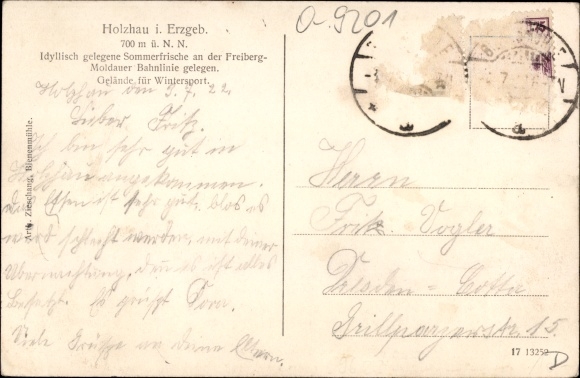 Holzhau i. Erzgeb.
700 m ü. N. N.
Idyllisch gelegene Sommerfrische an der Freiberg-
Moldauer Bahnlinie gelegen.
Gelände für Wintersport.
O-9201
Holzhau den 3.7.22.
Lieber Fritz.
Ich bin sehr gut in
Holzhau angekommen.
Das Essen ist sehr gut, blos es
wird schlecht werden, mit deiner
Übernachtung, denn es ist alles
besetzt. Es grüsst Dora.
Viele Grüsse an deine Eltern.
Arth. Zieschang, Bienenmühle.
Herrn
Fritz Vogler
Dresden-Cotta
Grillparzerstr. 15
17 13252
D